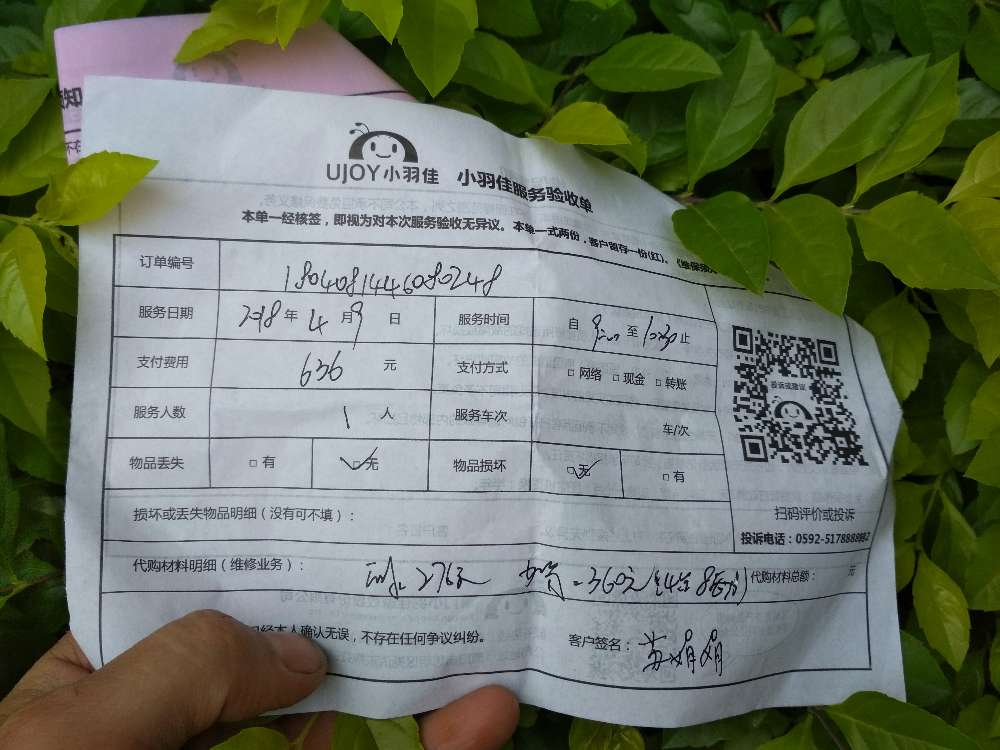 UJOY小羽佳 小羽佳服务验收单
本单一经核签，即视为对本次服务验收无异议。本单一式两份，客户留存一份(红)。《维保须
订单编号 1804081446080248
服务日期 2018年4月9日 服务时间 自 9:00 至 10:30 止
支付费用 636 元 支付方式 □网络 □现金 □转账
服务人数 1 人 服务车次 车/次
物品丢失 □有 ☑无 物品损坏 ☑无 □有
损坏或丢失物品明细（没有可不填）：
代购材料明细（维修业务）： 276元 -360元 代购材料总额： 元
经本人确认无误，不存在任何争议纠纷。 客户签名：苏娟娟
投诉或建议
扫码评价或投诉
投诉电话：0592-5178888882
知